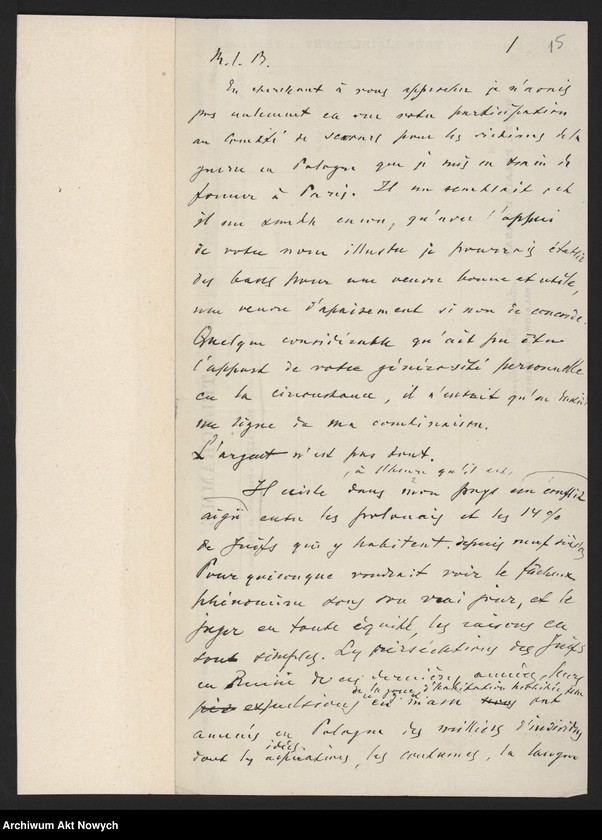 1 15
M. l. B.
En cherchant à vous approcher je n'avais
pas seulement en vue votre participation
au Comité de secours pour les victimes de la
guerre en Pologne que je suis en train de
former à Paris. Il me semblait, et
il me semble encore, qu'avec l'appui
de votre nom illustre je pourrais établir
des bases pour une œuvre bonne et utile,
une œuvre d'apaisement si non de concorde.
Quelque considérable qu'ait pu être
l'apport de votre générosité personnelle
en la circonstance, il n'entrait qu'en
ligne de ma combinaison.
L'argent n'est pas tout.
, à l'heure qu'il est,
Il existe dans mon pays un conflit
aigu entre les polonais et les 14%
de Juifs qui y habitent depuis neuf siècles
Pour quiconque voudrait voir le fâcheux
phénomène sous son vrai jour, et le
juger en toute équité, les raisons en
sont simples. Les persécutions des Juifs
en Russie de ces dernières années, leurs
de la zone d'habitation
expulsions en masse ont
amenés en Pologne des milliers d'individus
idées
dont les aspirations, les coutumes, la langue
Archiwum Akt Nowych